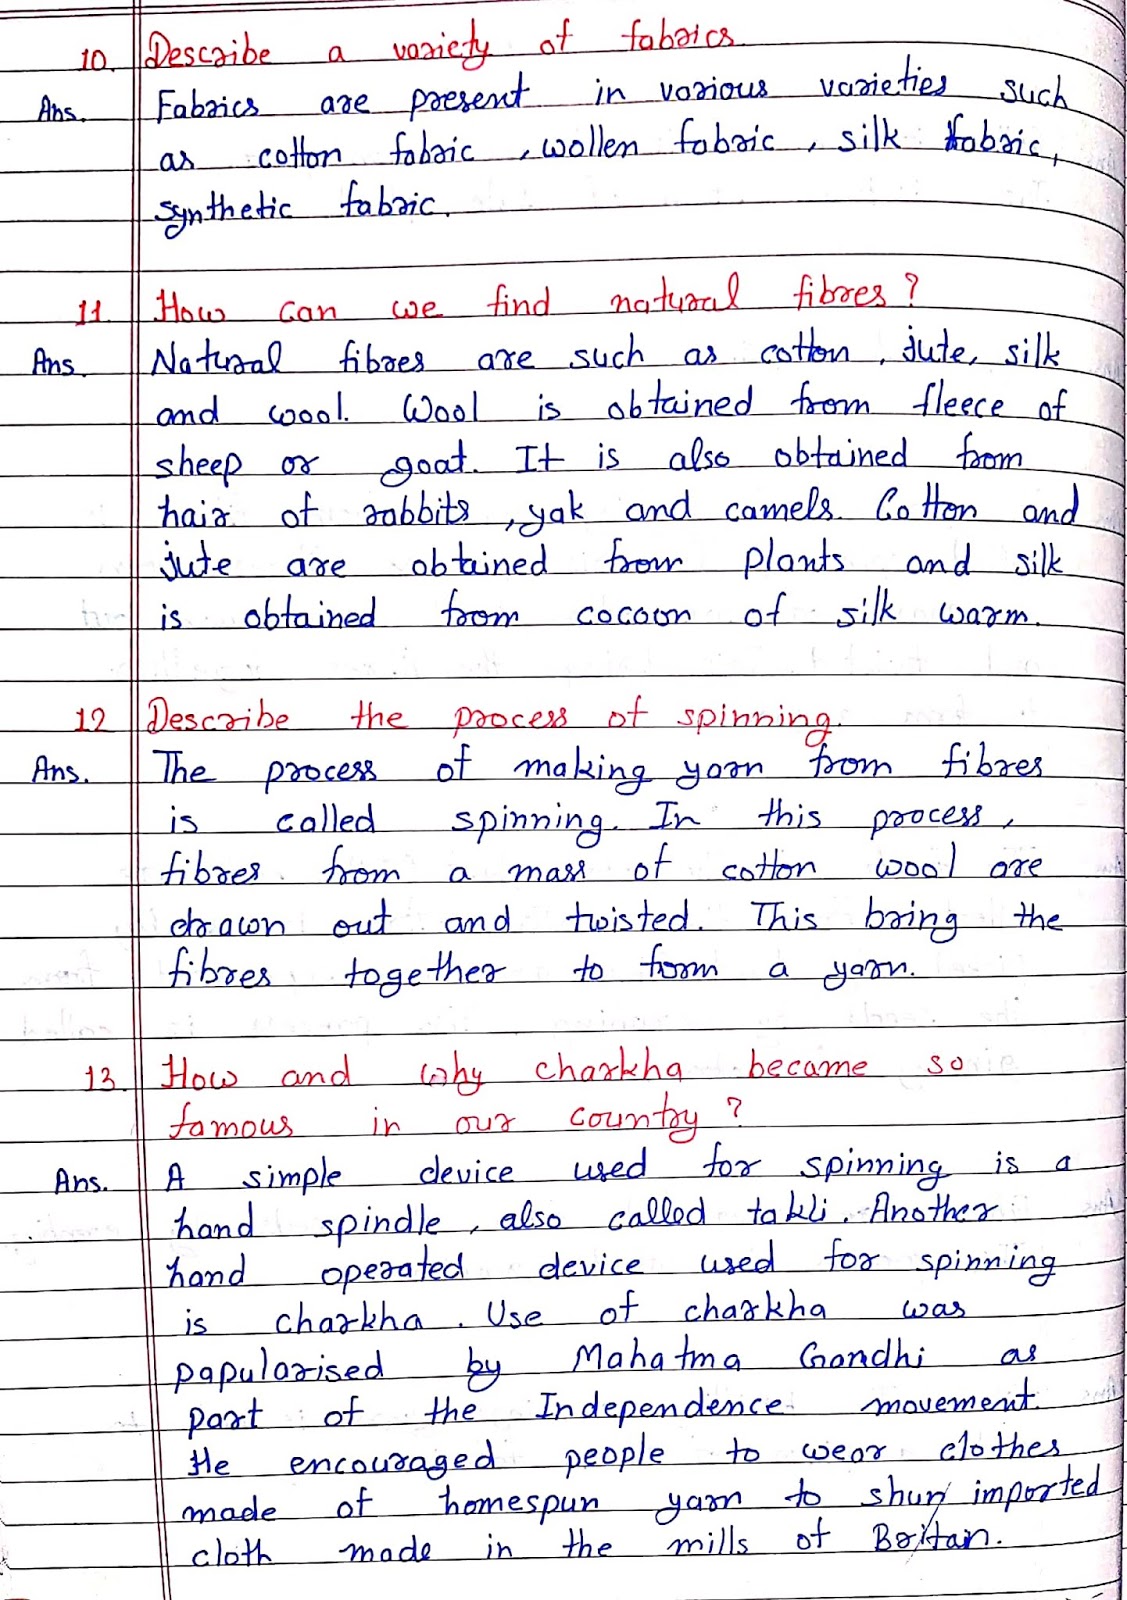 10. Describe a variety of fabrics.
Ans. Fabrics are present in various varieties such
as cotton fabric, wollen fabric, silk fabric,
synthetic fabric.
11. How can we find natural fibres?
Ans. Natural fibres are such as cotton, jute, silk
and wool. Wool is obtained from fleece of
sheep or goat. It is also obtained from
hair of rabbits, yak and camels. Cotton and
jute are obtained from plants and silk
is obtained from cocoon of silk warm.
12 Describe the process of spinning.
Ans. The process of making yarn from fibres
is called spinning. In this process,
fibres from a mass of cotton wool are
drawn out and twisted. This bring the
fibres together to form a yarn.
13. How and why charkha became so
famous in our country?
Ans. A simple device used for spinning is a
hand spindle, also called takli. Another
hand operated device used for spinning
is charkha. Use of charkha was
papularised by Mahatma Gandhi as
part of the Independence movement.
He encouraged people to wear clothes
made of homespun yarn to shun imported
cloth made in the mills of Britan.